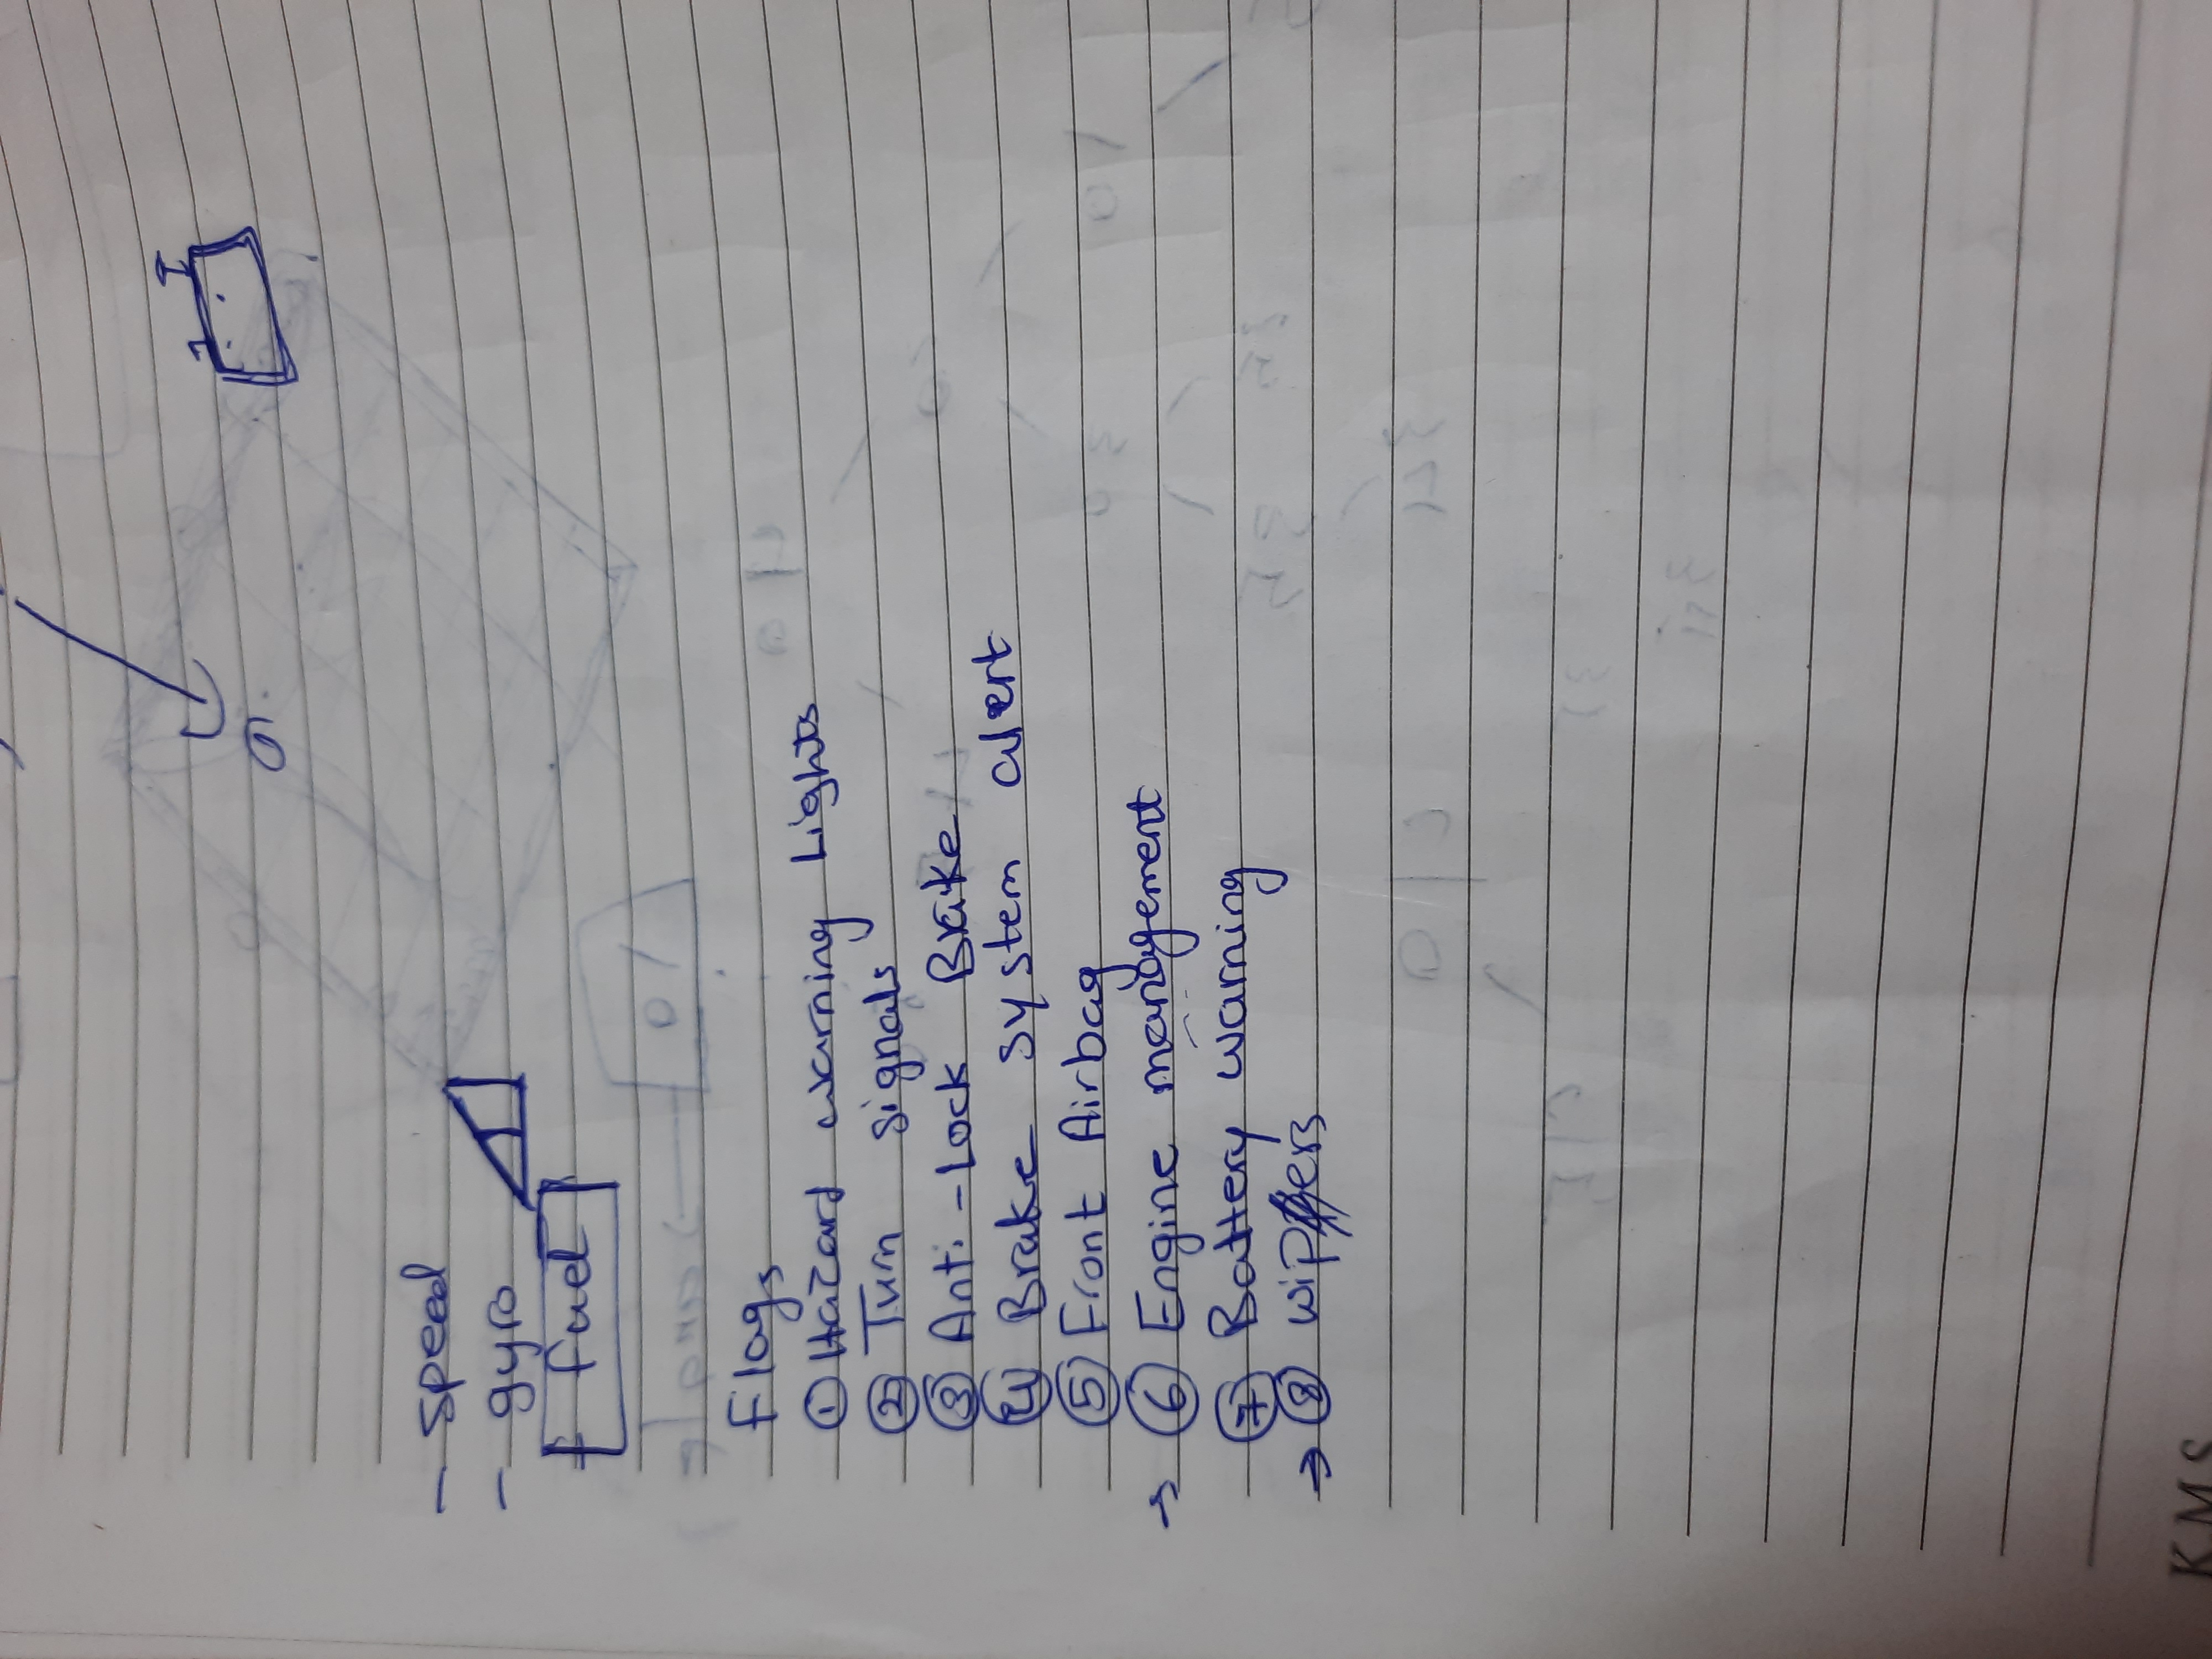 - speed
- gyro
- fuel
Flags
① Hazard warning Lights
② Turn signals
③ Anti-Lock Brake
④ Brake system alert
⑤ Front Airbag
→ ⑥ Engine management
⑦ Battery warning
→ ⑧ wippers
K.M.S